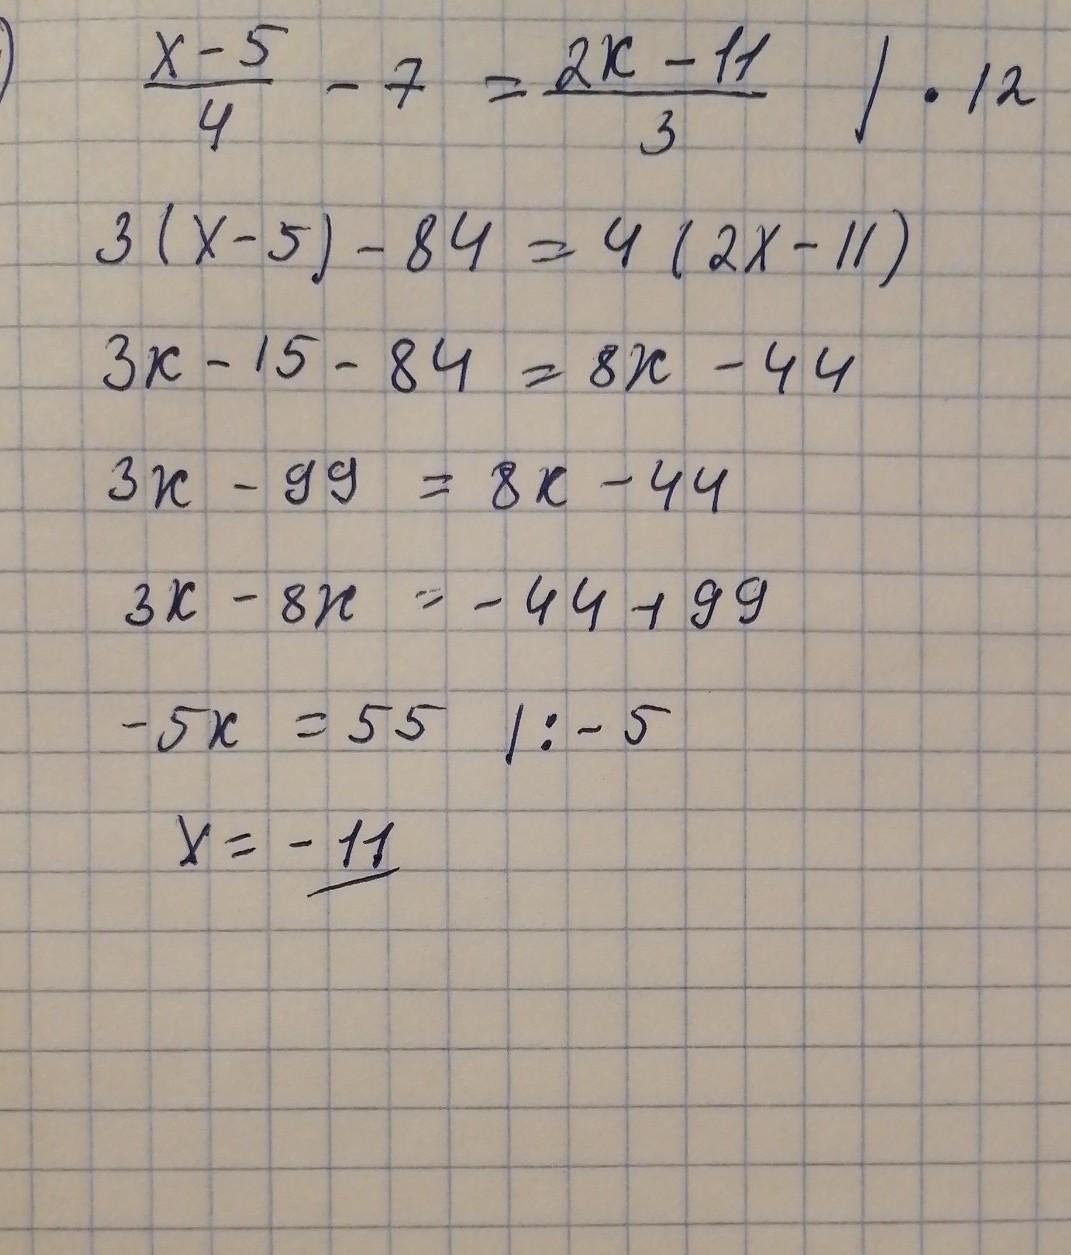 x - 5 / 4 - 7 = 2x - 11 / 3 | · 12
3(x - 5) - 84 = 4(2x - 11)
3x - 15 - 84 = 8x - 44
3x - 99 = 8x - 44
3x - 8x = - 44 + 99
-5x = 55 | : - 5
x = - 11